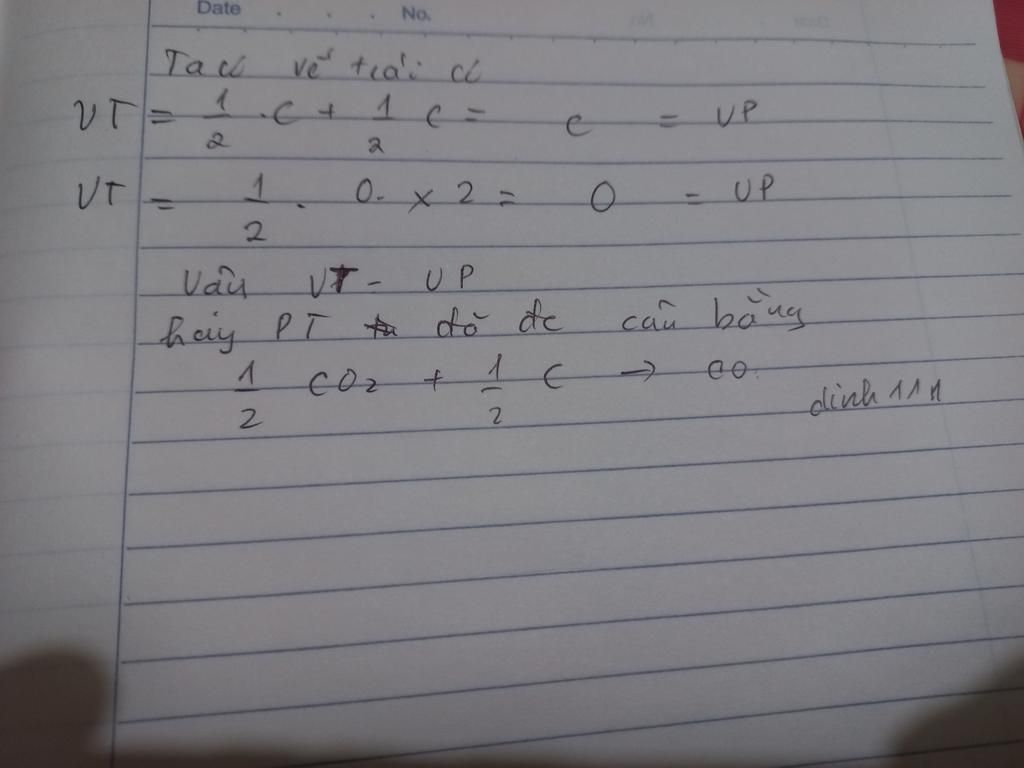 Date . . . No.
Ta có vế trái có
VT = 1/2 .C + 1/2 C = C = VP
VT = 1/2 . O. × 2 = O = VP
Vậy VT - VP
hay PT đó đc cân bằng
1/2 CO₂ + 1/2 C → CO.
dinh 11A